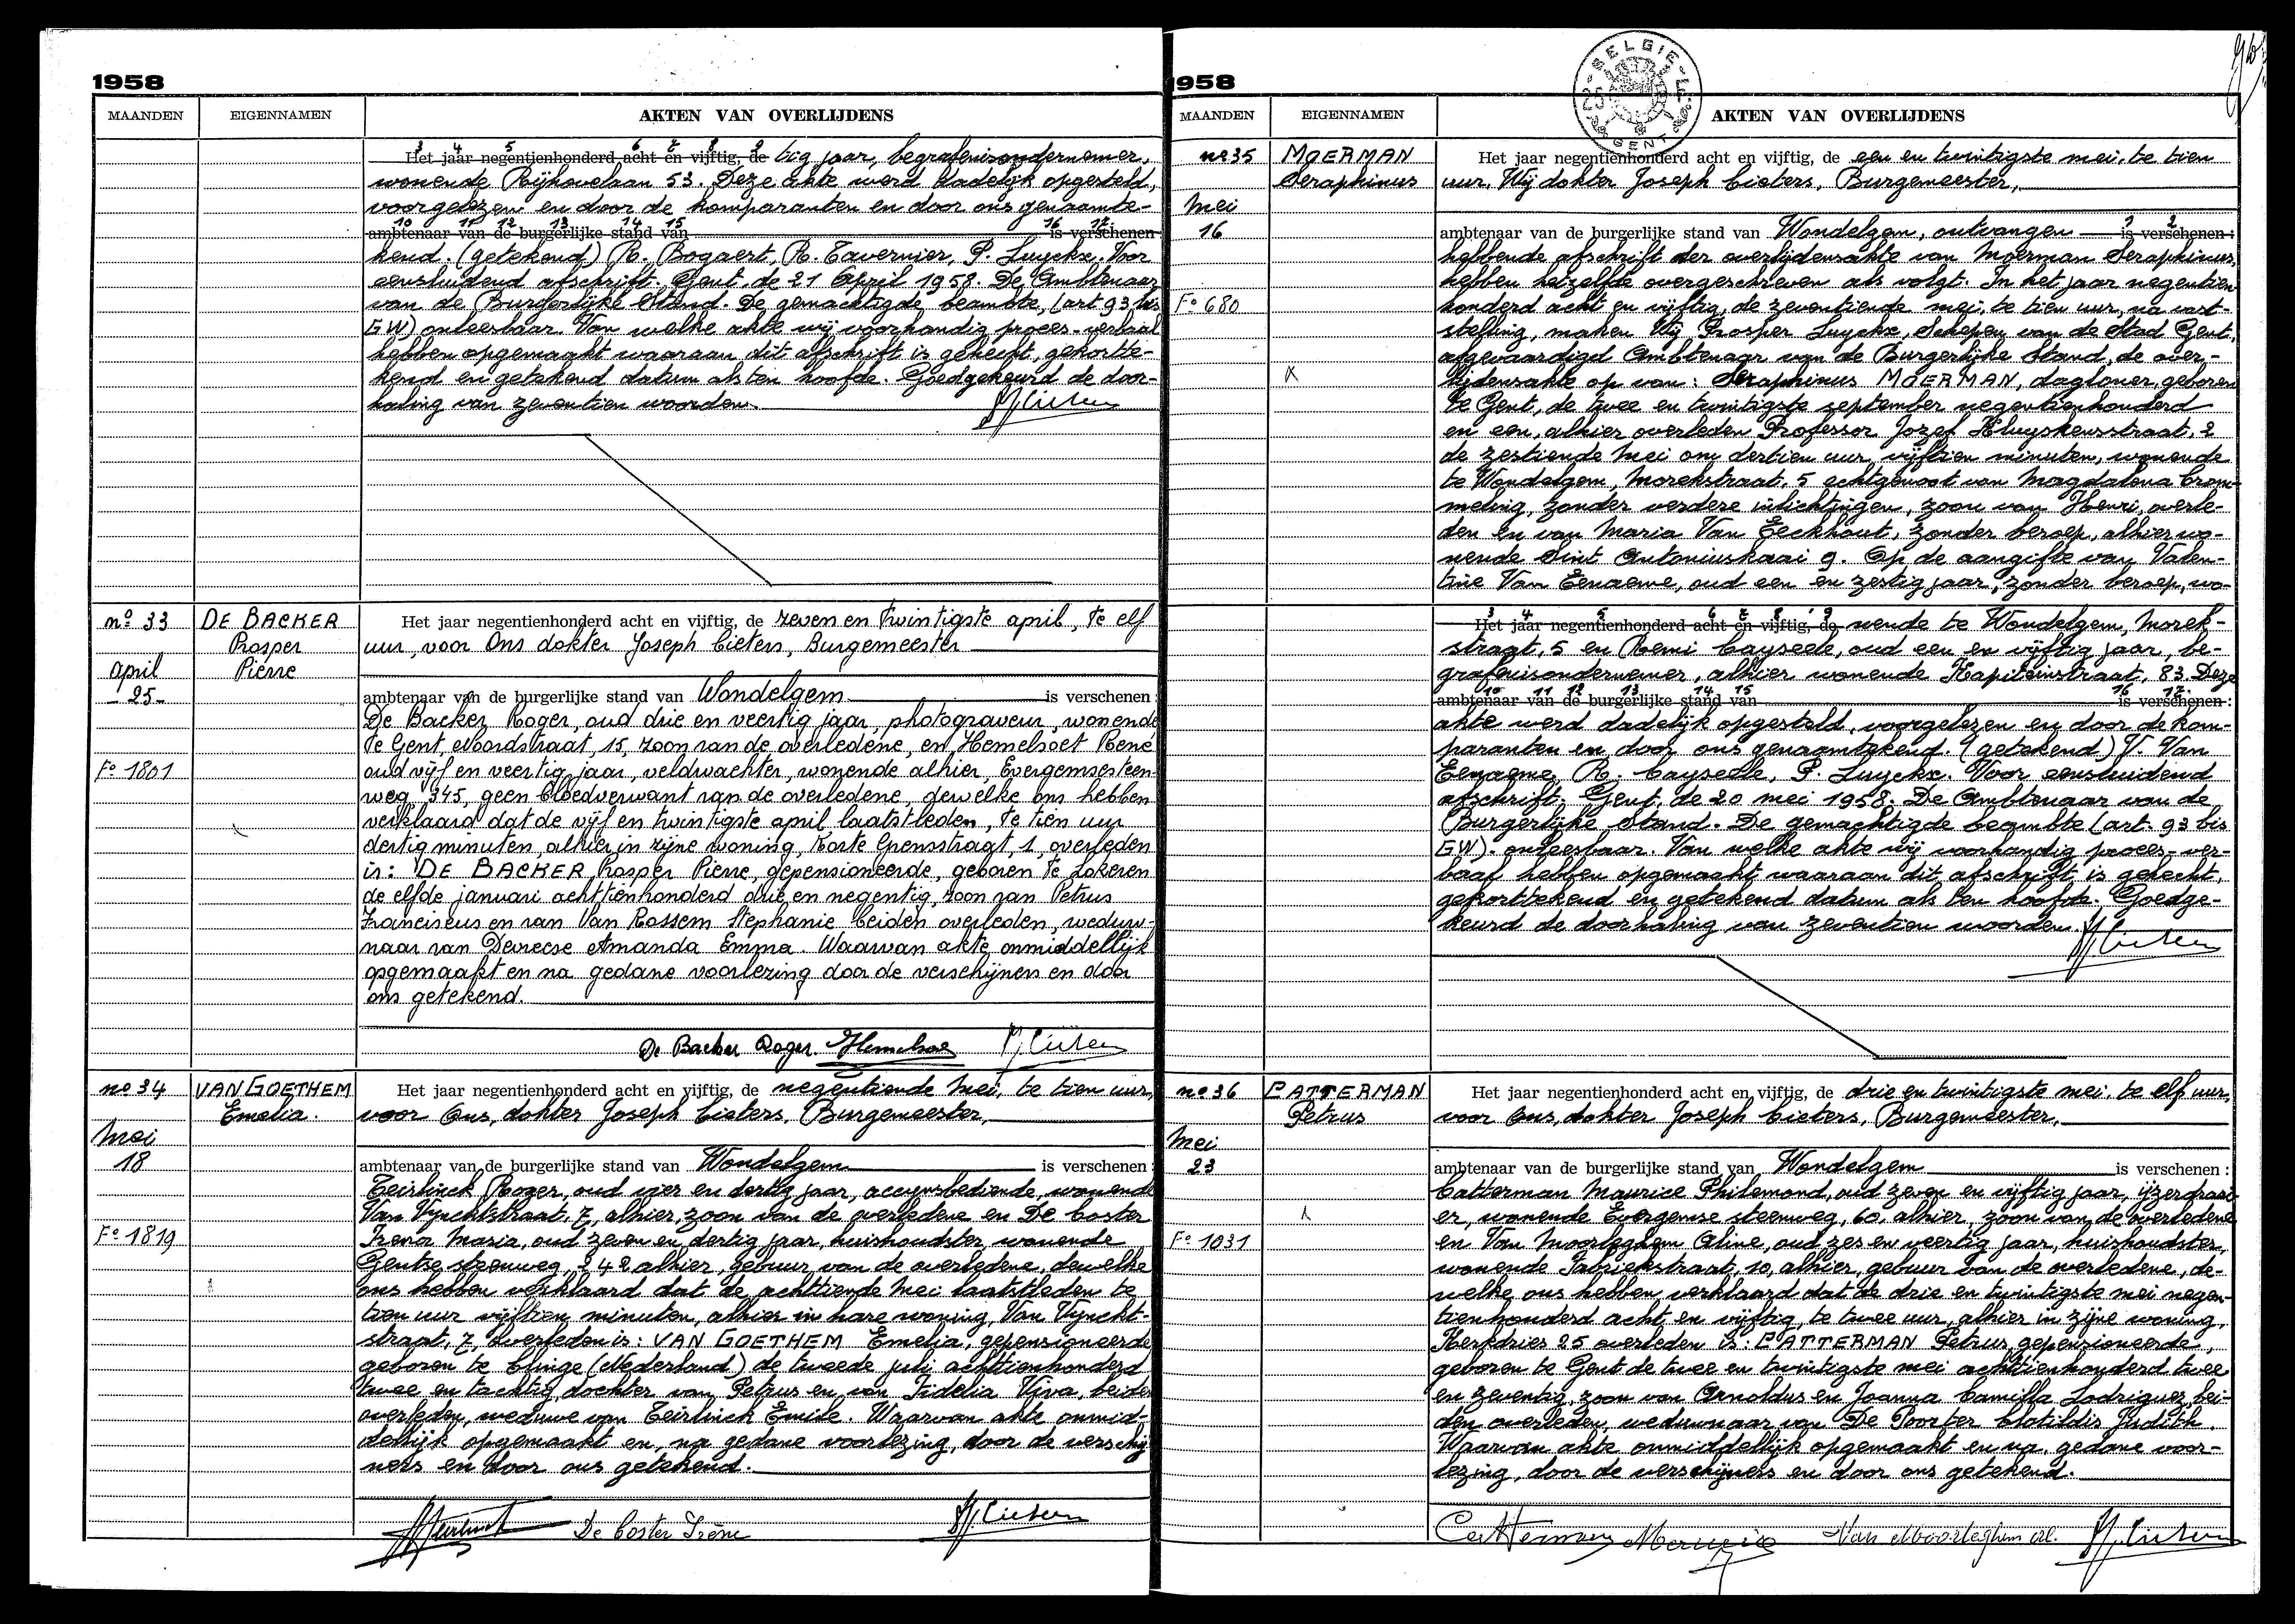 1958
MAANDEN EIGENNAMEN AKTEN VAN OVERLIJDENS
3 4 5 6 7 8 9
Het jaar negentienhonderd acht en vijftig, de tig jaar, begrafenisondernemer,
wonende Rijhovelaan 53. Deze akte werd dadelijk opgesteld,
voorgelezen en door de komparanten en door ons genaamte-
10 11 12 13 14 15 16 17
ambtenaar van de burgerlijke stand van is verschenen
kend. (getekend) R. Bogaert, R. Tavernier, P. Luyckx. Voor
eensluidend afschrift. Gent, de 21 April 1958. De Ambtenaar
van de Burgerlijke Stand. De gemachtigde beambte, (art 93 bis
GW) onleesbaar. Van welke akte wij voorhandig proces-verbaal
hebben opgemaakt waaraan dit afschrift is gehecht, gekortte-
kend en getekend datum als ten hoofde. Goedgekeurd de door-
haling van zeventien woorden.
no 33 DE BACKER Prosper Pierre
april
-25-
Fo 1801
Het jaar negentienhonderd acht en vijftig, de zeven en twintigste april, te elf
uur, voor Ons dokter Joseph Cieters, Burgemeester
ambtenaar van de burgerlijke stand van Wondelgem is verschenen:
De Backer Roger, oud drie en veertig jaar, photograveur, wonende
te Gent, Noordstraat, 15, zoon van de overledene, en Hemelsoet René
oud vijf en veertig jaar, veldwachter, wonende alhier, Evergemsesteen-
weg, 345, geen bloedverwant van de overledene, dewelke ons hebben
verklaard dat de vijf en twintigste april laatstleden, te tien uur
dertig minuten, alhier in zijne woning, Korte Ipensstraat, 1, overleden
is: DE BACKER Prosper Pierre, gepensioneerde, geboren te Lokeren
de elfde januari achttienhonderd drie en negentig, zoon van Petrus
Franciscus en van Van Rossem Stephanie beiden overleden, weduw-
naar van Devreese Amanda Emma. Waarvan akte onmiddellijk
opgemaakt en na gedane voorlezing door de verschijners en door
ons getekend.
De Backer Roger.
no 34 VAN GOETHEM Emelia.
Mei
18
Fo 1819
Het jaar negentienhonderd acht en vijftig, de negentiende Mei, te tien uur,
voor Ons, dokter Joseph Cieters, Burgemeester,
ambtenaar van de burgerlijke stand van Wondelgem is verschenen:
Teirlinck Roger, oud vier en dertig jaar, accynsbediende, wonende
Van Vynchtstraat, 7, alhier, zoon van de overledene en De Coster
Irena Maria, oud zeven en dertig jaar, huishoudster, wonende
Gentse steenweg, 242 alhier, gebuur van de overledene, dewelke
ons hebben verklaard dat de achttiende Mei laatstleden te
tien uur vijftien minuten, alhier in hare woning, Van Vyncht-
straat, 7, overleden is: VAN GOETHEM Emelia, gepensioneerde
geboren te Clinge (Nederland) de tweede juli achttienhonderd
twee en tachtig, dochter van Petrus en van Fidelia Viva, beiden
overleden, weduwe van Teirlinck Emile. Waarvan akte onmid-
dellijk opgemaakt en, na gedane voorlezing, door de verschij-
ners en door ons getekend.
De Coster Irène
1958
BELGIE
GENT
MAANDEN EIGENNAMEN AKTEN VAN OVERLIJDENS
no 35 MOERMAN Seraphinus
Mei
16
Fo 680
Het jaar negentienhonderd acht en vijftig, de een en twintigste mei, te tien
uur, Wij dokter Joseph Cieters, Burgemeester,
1 2
ambtenaar van de burgerlijke stand van Wondelgem, ontvangen is verschenen:
hebbende afschrift der overlijdensakte van Moerman Seraphinus,
hebben hetzelfde overgeschreven als volgt. In het jaar negentien
honderd acht en vijftig, de zeventiende mei, te tien uur, na vast-
stelling, maken Wij Prosper Luyckx, Schepen van de Stad Gent,
afgevaardigd Ambtenaar van de Burgerlijke Stand, de over-
lijdensakte op van: Seraphinus MOERMAN, dagloner, geboren
te Gent, de twee en twintigste september negentienhonderd
en een, alhier overleden Professor Jozef Kluyskensstraat, 2
de zestiende Mei om dertien uur vijftien minuten, wonende
te Wondelgem, Morekstraat, 5 echtgenoot van Magdalena Crom-
meling, zonder verdere inlichtingen, zoon van Henri, overle-
den en van Maria Van Eeckhout, zonder beroep, alhier wo-
nende Sint Antoniuskaai 9. Op de aangifte van Valen-
tine Van Eenaeme, oud een en zestig jaar, zonder beroep, wo-
3 4 5 6 7 8 9
Het jaar negentienhonderd acht en vijftig, de nende te Wondelgem, Morek-
straat, 5 en Remi Cayseele, oud een en vijftig jaar, be-
grafenisondernemer, alhier wonende Kapiteinstraat, 83. Deze
10 11 12 13 14 15 16 17
ambtenaar van de burgerlijke stand van is verschenen:
akte werd dadelijk opgesteld, voorgelezen en door de kom-
paranten en door ons genaamtekend. (getekend) V. Van
Eenaeme, R. Cayseele, P. Luyckx. Voor eensluidend
afschrift. Gent, de 20 mei 1958. De Ambtenaar van de
Burgerlijke Stand. De gemachtigde beambte (art. 93 bis
GW). onleesbaar. Van welke akte wij voorhandig proces-ver-
baal hebben opgemaakt waaraan dit afschrift is gehecht,
gekorttekend en getekend datum als ten hoofde. Goedge-
keurd de doorhaling van zeventien woorden.
no 36 CATTERMAN Petrus
Mei
23
Fo 1031
Het jaar negentienhonderd acht en vijftig, de drie en twintigste mei, te elf uur,
voor Ons, dokter Joseph Cieters, Burgemeester,
ambtenaar van de burgerlijke stand van Wondelgem is verschenen:
Catterman Maurice Philemond, oud zeven en vijftig jaar, ijzerdraai-
er, wonende Evergemse steenweg, 60, alhier, zoon van de overledene
en Van Moorleghem Aline, oud zes en veertig jaar, huishoudster,
wonende Fabriekstraat, 10, alhier, gebuur van de overledene, de-
welke ons hebben verklaard dat de drie en twintigste mei negen-
tienhonderd acht en vijftig, te twee uur, alhier in zijne woning,
Kerkdries 25 overleden is: CATTERMAN Petrus, gepensioneerde,
geboren te Gent de twee en twintigste mei achttienhonderd twee
en zeventig, zoon van Arnoldus en Joanna Camilla Lodriguez, bei-
den overleden, weduwnaar van De Poorter Clotildis Judith.
Waarvan akte onmiddellijk opgemaakt en na gedane voor-
lezing, door de verschijners en door ons getekend.
Catterman Maurice Van Moorleghem al.